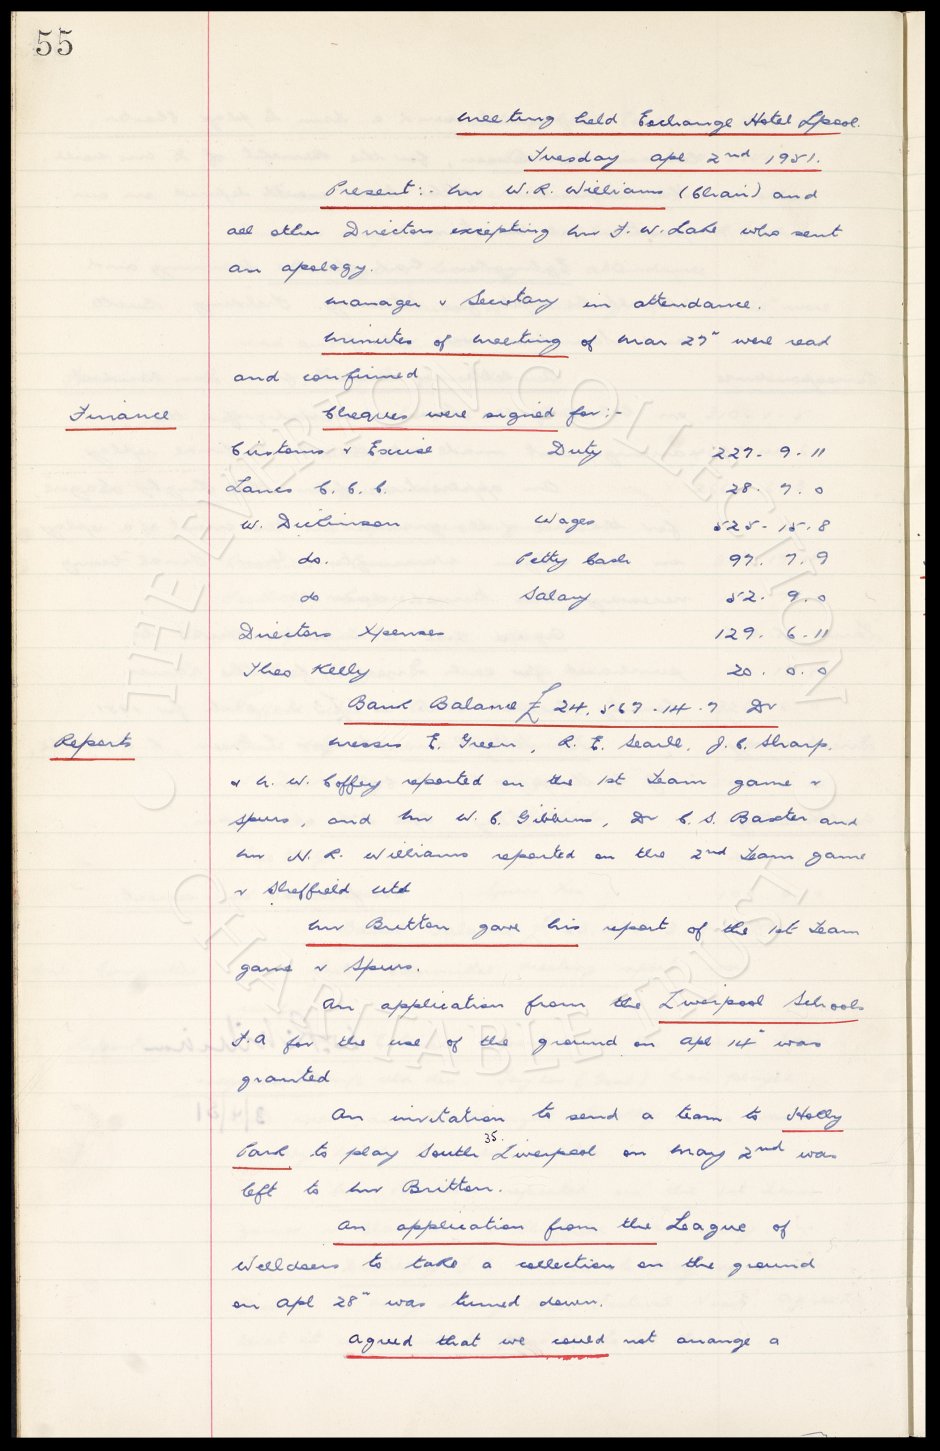 55
Meeting held Exchange Hotel Lpool.
Tuesday Apl 2nd 1951.
Present:- Mr W. R. Williams (Chair) and
all other Directors excepting Mr F. W. Lake who sent
an apology.
Manager & Secretary in attendance.
Minutes of meeting of Mar 27" were read
and confirmed
Finance Cheques were signed for:-
Customs & Excise Duty 227. 9. 11
Lancs C. C. C. 28. 7. 0
W. Dickinson Wages 525. 15. 8
do. Petty Cash 97. 7. 9
do Salary 52. 9. 0
Directors Xpenses 129. 6. 11
Theo Kelly 20. 0. 0
Bank Balance £24,567.14.7 Dr
Reports Messrs E. Green, R. E. Searle, J. C. Sharp,
& N. W. Coffey reported on the 1st Team game v
Spurs, and Mr W. C. Gibbins, Dr C. S. Baxter and
Mr N. R. Williams reported on the 2nd Team game
v Sheffield Utd
Mr Britton gave his report of the 1st Team
game v Spurs.
An application from the Liverpool Schools
F.A for the use of the ground on Apl 14" was
granted
An invitation to send a team to Holly
35.
Park to play South Liverpool on May 2nd was
left to Mr Britton.
An application from the League of
Welldoers to take a collection on the ground
on Apl 28" was turned down.
Agreed that we could not arrange a
THE EVERTON COLLECTION
CHARITABLE TRUST